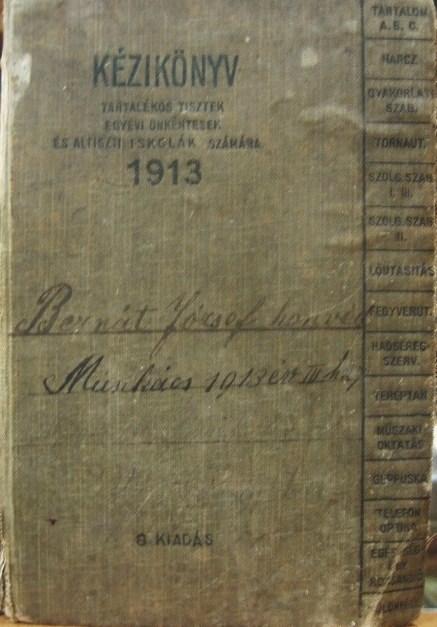 KÉZIKÖNYV
TARTALÉKOS TISZTEK
EGYÉVI ÖNKÉNTESEK
ÉS ALTISZTI ISKOLÁK SZÁMÁRA
1913
Bernát József honvéd
Munkács 1913 év III
6 KIADÁS
TARTALOM
A. B. C.
HARCZ
GYAKORLATI
SZAB.
TORNAUT.
SZOLG. SZAB.
I. III.
SZOLG. SZAB.
II.
LŐUTASITÁS
FEGYVERUT.
HADSEREG-
SZERV.
TEREPTAN
MŰSZAKI
OKTATÁS
GÉPPUSKA
TELEFON
OPTIKA